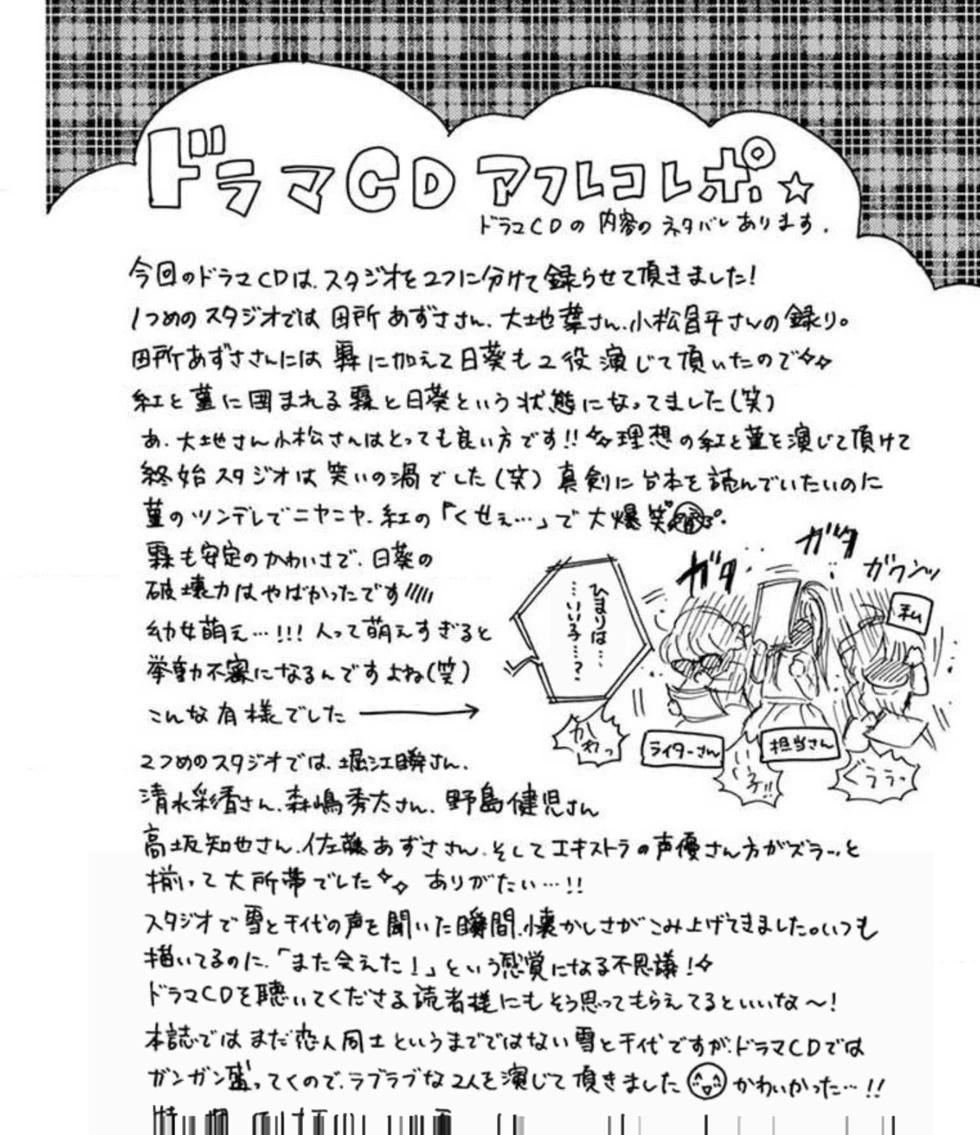 ドラマCD アフレコレポ☆
ドラマCDの内容のネタバレあります.
今回のドラマCDは、スタジオを2つに分けて録らせて頂きました!
1つめのスタジオでは 田所あずささん、大地葉さん、小松昌平さんの録り。
田所あずささんには 霖に加えて日葵も2役演じて頂いたので✧✧
紅と菫に囲まれる霖と日葵という状態になってました(笑)
あ、大地さん小松さんはとっても良い方です!!✧✧理想の紅と菫を演じて頂けて
終始スタジオは笑いの渦でした(笑) 真剣に台本を読んでいたいのに
菫のツンデレでニヤニヤ、紅の「くせぇ…」で大爆笑
霖も安定のかわいさで、日葵の
破壊力はやばかったです/////
幼女萌え…!!! 人って萌えすぎると
挙動不審になるんですよね(笑)
こんな有様でした →
ひまりは…
…いい子…?
ガタ
ガタ
ガクンッ
私
かわっ
ライターさん
担当さん
いい子!!
ううっ
2つめのスタジオでは、堀江瞬さん、
清水彩香さん、森嶋秀太さん、野島健児さん
高坂知也さん、佐藤あずささん、そしてエキストラの声優さん方がズラーッと
揃って大所帯でした✧✧ ありがたい…!!
スタジオで雪と千代の声を聞いた瞬間、懐かしさがこみ上げてきました。いつも
描いてるのに、「また会えた!」という感覚になる不思議!✧
ドラマCDを聴いてくださる読者様にもそう思ってもらえてるといいな〜!
本誌ではまだ恋人同士というまでではない雪と千代ですが、ドラマCDでは
ガンガン盛ってくので、ラブラブな2人を演じて頂きました かわいかった…!!